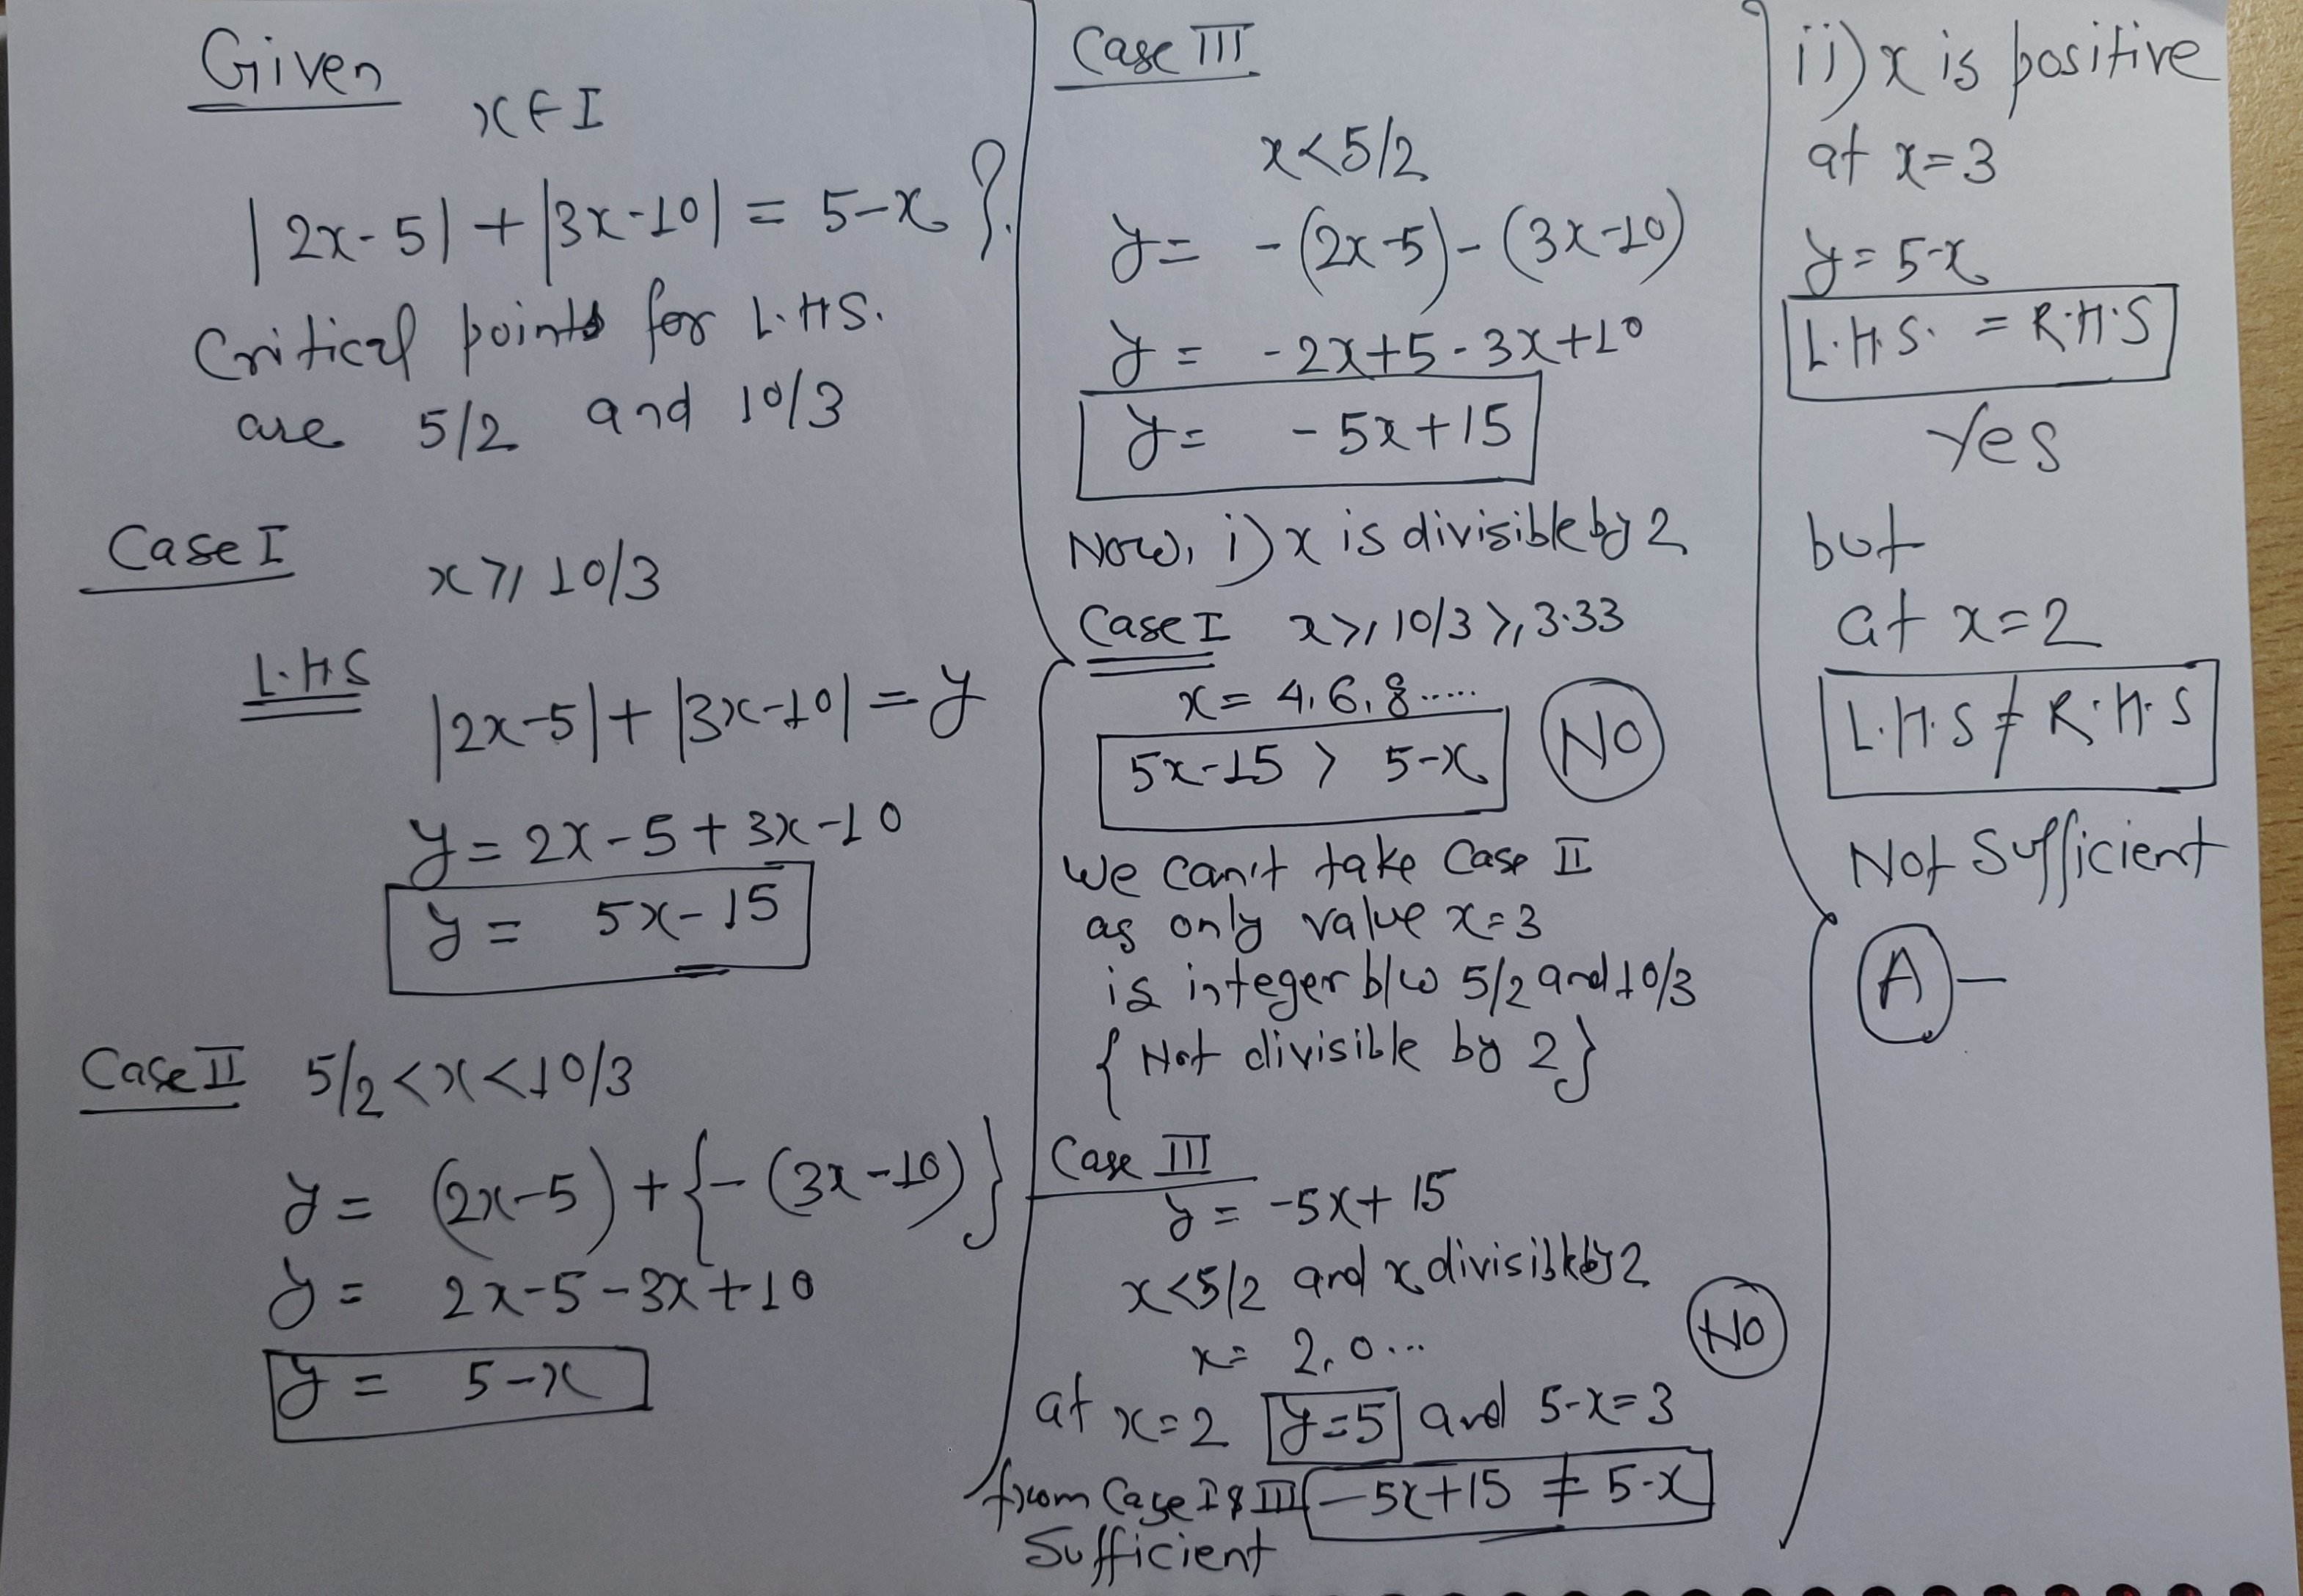 Given
x∈I
|2x-5|+|3x-10| = 5-x ?
Critical points for L.H.S.
are 5/2 and 10/3
Case I
x ≥ 10/3
L.H.S
|2x-5|+|3x-10| = y
y = 2x-5+3x-10
y = 5x-15
Case II 5/2<x<10/3
y = (2x-5)+{-(3x-10)}
y = 2x-5-3x+10
y = 5-x
Case III
x<5/2
y = -(2x-5)-(3x-10)
y = -2x+5-3x+10
y = -5x+15
Now, i) x is divisible by 2
Case I x ≥ 10/3 ≥ 3.33
x = 4,6,8.....
5x-15 > 5-x NO
We can't take Case II
as only value x=3
is integer b/w 5/2 and 10/3
{Not divisible by 2}
Case III
y = -5x+15
x<5/2 and x divisible by 2
x = 2,0... NO
at x=2 y=5 and 5-x=3
from Case I & III -5x+15 ≠ 5-x
Sufficient
ii) x is positive
at x=3
y=5-x
L.H.S. = R.H.S
Yes
but
at x=2
L.H.S ≠ R.H.S
Not Sufficient
A -